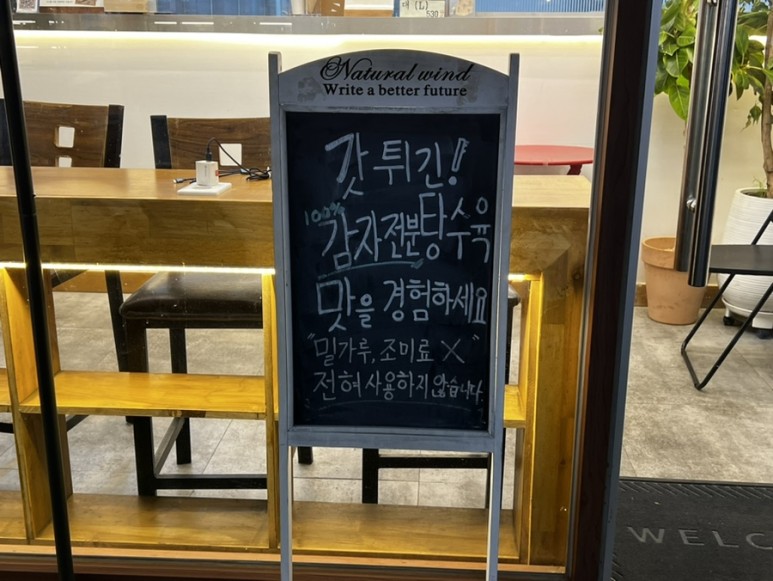 Natural wind
Write a better future
갓 튀긴!
100%
감자전분탕수육
맛을 경험하세요
"밀가루, 조미료 X"
전혀 사용하지 않습니다.
WELC